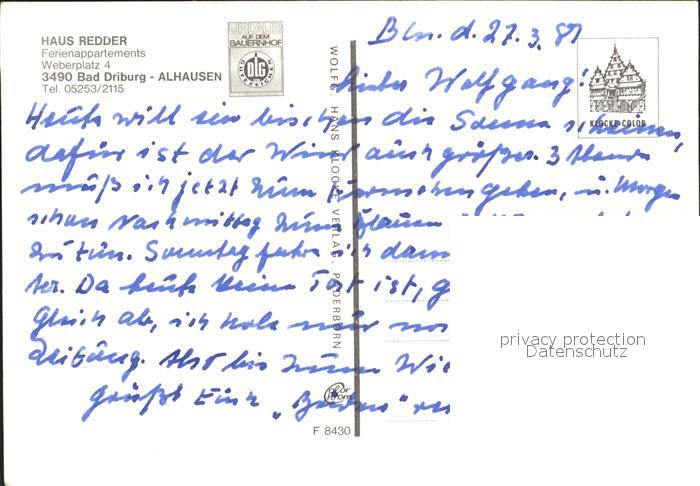 HAUS REDDER
Ferienappartements
Weberplatz 4
3490 Bad Driburg - ALHAUSEN
Tel. 05253/2115
URLAUB
AUF DEM
BAUERNHOF
DLG
GÜTEZEICHEN
WOLFG. HANS KLOCKE VERLAG, PADERBORN
KLOCKE-COLOR
Bln. d. 27.3.87
Lieber Wolfgang!
Heute will ein bischen die Sonne scheinen,
dafür ist der Wind auch größer. 3 Abende
muß ich jetzt zum gehen, u. Morgen
schon Nachmittag zum blauen
zu tun. Sonntag fahre ich dann
ter. Da heute keine Post ist, g
Gleich ab, ich hole mir no
Zeitung. Also bis zum Wie
grüßt Euch
color
chrom
F 8430
privacy protection
Datenschutz